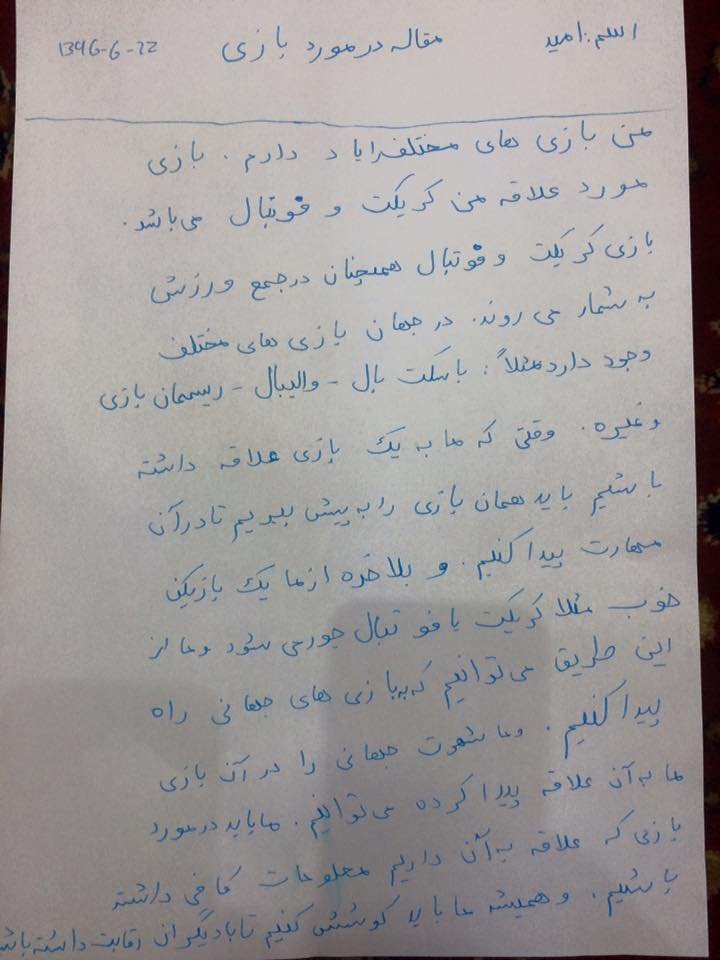 اسم: امید مقاله در مورد بازی 1396-6-22
من بازی های مختلف را یاد دارم. بازی
مورد علاقه من کریکت و فوتبال می باشد.
بازی کریکت و فوتبال همچنان در جمع ورزش
به شمار می روند. در جهان بازی های مختلف
وجود دارد مثلاً: باسکت بال - والیبال - ریسمان بازی
و غیره. وقتی که ما به یک بازی علاقه داشته
باشیم باید همان بازی را به پیش ببریم تا در آن
مهارت پیدا کنیم. و بلاخره از ما یک بازیکن
خوب مثلا کریکت یا فوتبال جور می شود و ما از
این طریق می توانیم که به بازی های جهانی راه
پیدا کنیم. و ما شهرت جهانی را در آن بازی
ما به آن علاقه پیدا کرده می توانیم. ما باید در مورد
بازی که علاقه به آن داریم معلومات کافی داشته
باشیم. و همیشه ما باید کوشش کنیم تا با دیگران رقابت داشته باش